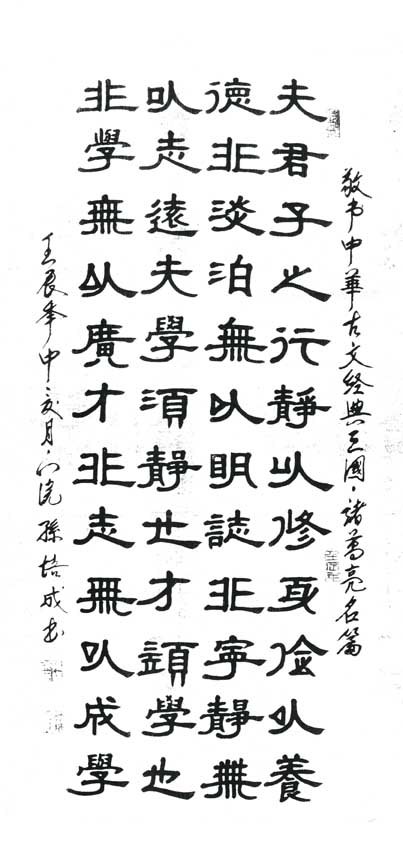 敬书中華古文经典三國·諸葛亮名篇
夫君子之行靜以修身儉以養
德非淡泊無以明誌非寧靜無
以志遠夫學須靜也才須學也
非學無以廣才非志無以成學
壬辰年中月浣孫培成书